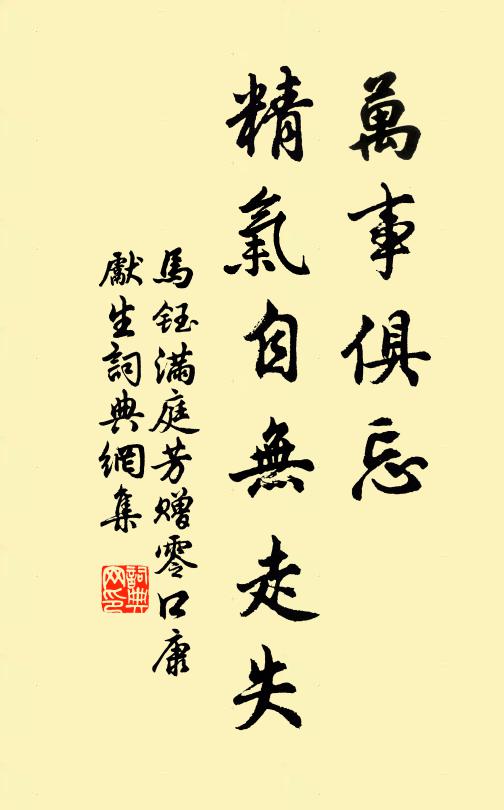 萬事俱忘
精氣自無走失
馬鈺滿庭芳赠零口康
獻生詞典網集
詞典
网印